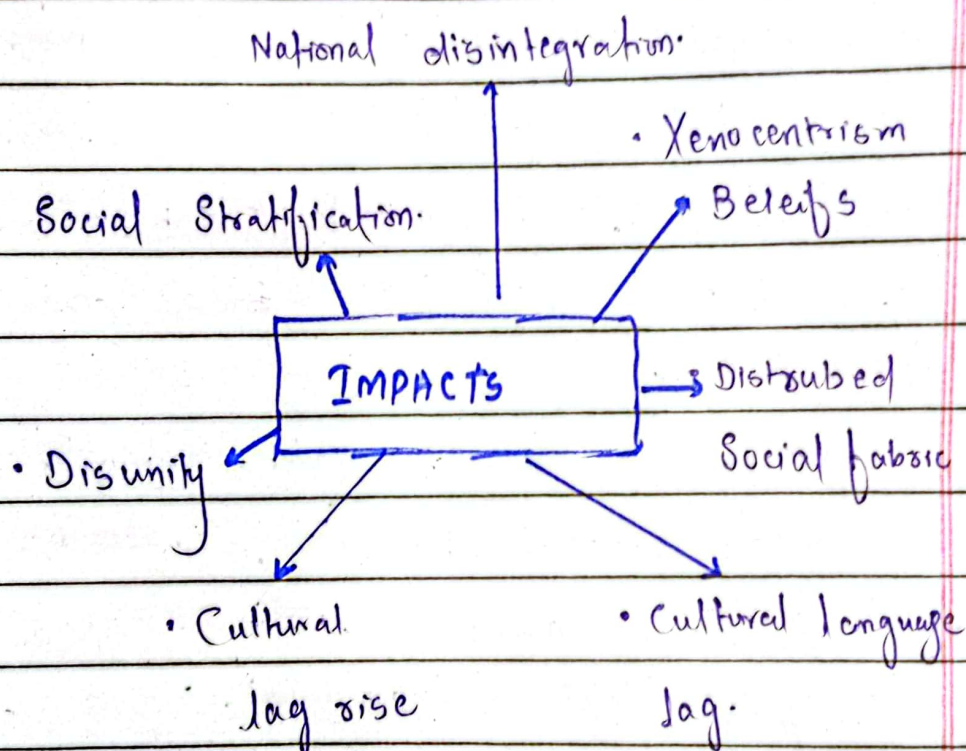 National disintegration.
• Xenocentrism
Beleifs
Social Stratification.
IMPACTS
Distrubed
Social fabric
• Disunity
• Cultural
lag rise
• Cultural language
lag.